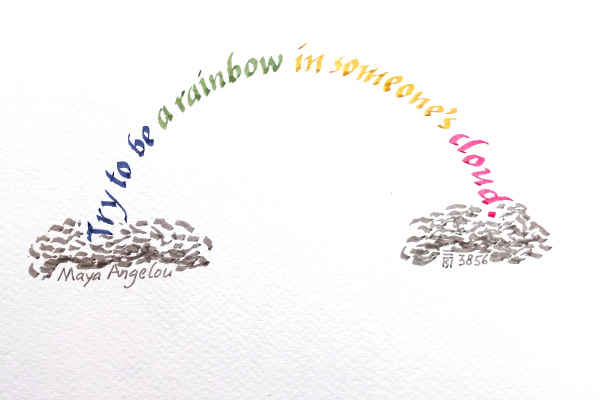 Try to be a rainbow in someone's cloud.
Maya Angelou
3856